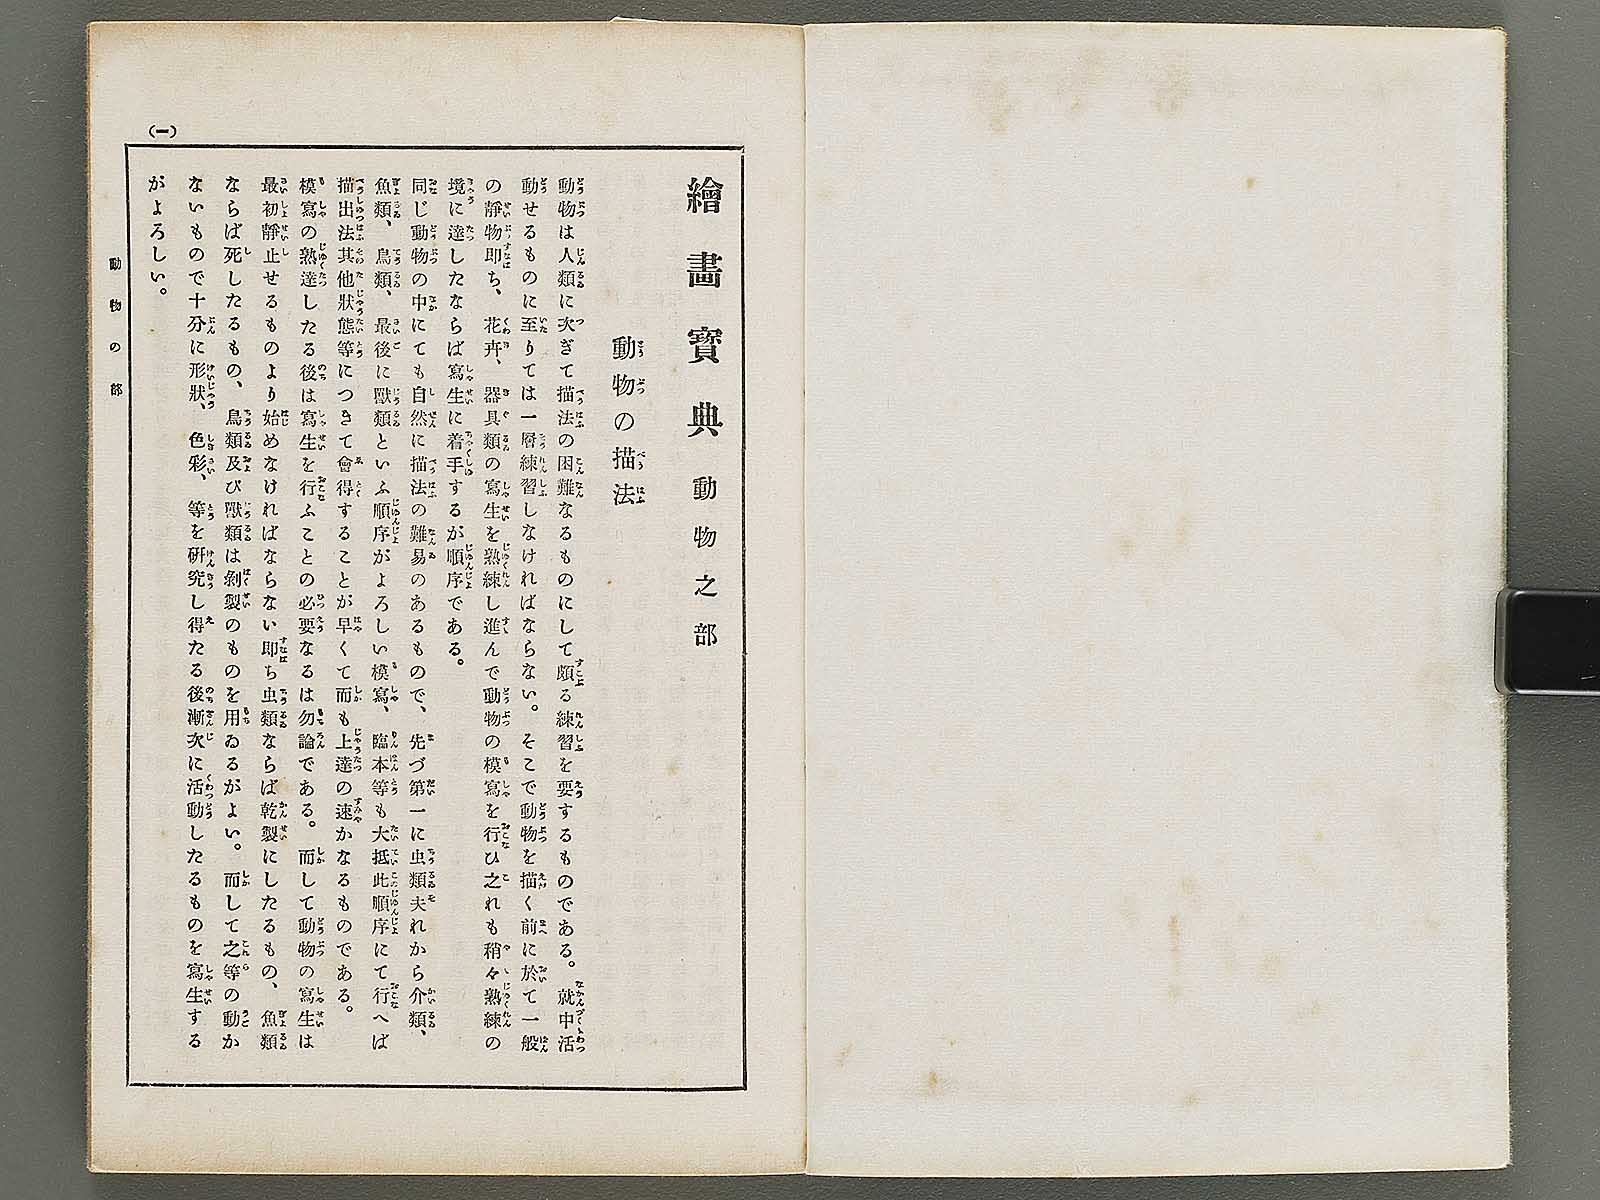 繪畫寳典 動物之部
動物の描法
動物は人類に次ぎて描法の困難なるものにして頗る練習を要するものである。就中活
動せるものに至りては一層練習しなければならない。そこで動物を描く前に於て一般
の靜物即ち、花卉、器具類の寫生を熟練し進んで動物の模寫を行ひ之れも稍々熟練の
境に達したならば寫生に着手するが順序である。
同じ動物の中にても自然に描法の難易のあるもので、先づ第一に虫類夫れから介類、
魚類、鳥類、最後に獸類といふ順序がよろしい模寫、臨本等も大抵此順序にて行へば
描出法其他狀態等につきて會得することが早くて而も上達の速かなるものである。
模寫の熟達したる後は寫生を行ふことの必要なるは勿論である。而して動物の寫生は
最初靜止せるものより始めなければならない即ち虫類ならば乾製にしたるもの、魚類
ならば死したるもの、鳥類及び獸類は剝製のものを用ゐるがよい。而して之等の動か
ないもので十分に形狀、色彩、等を硏究し得たる後漸次に活動したるものを寫生する
がよろしい。
動物の部
(一)